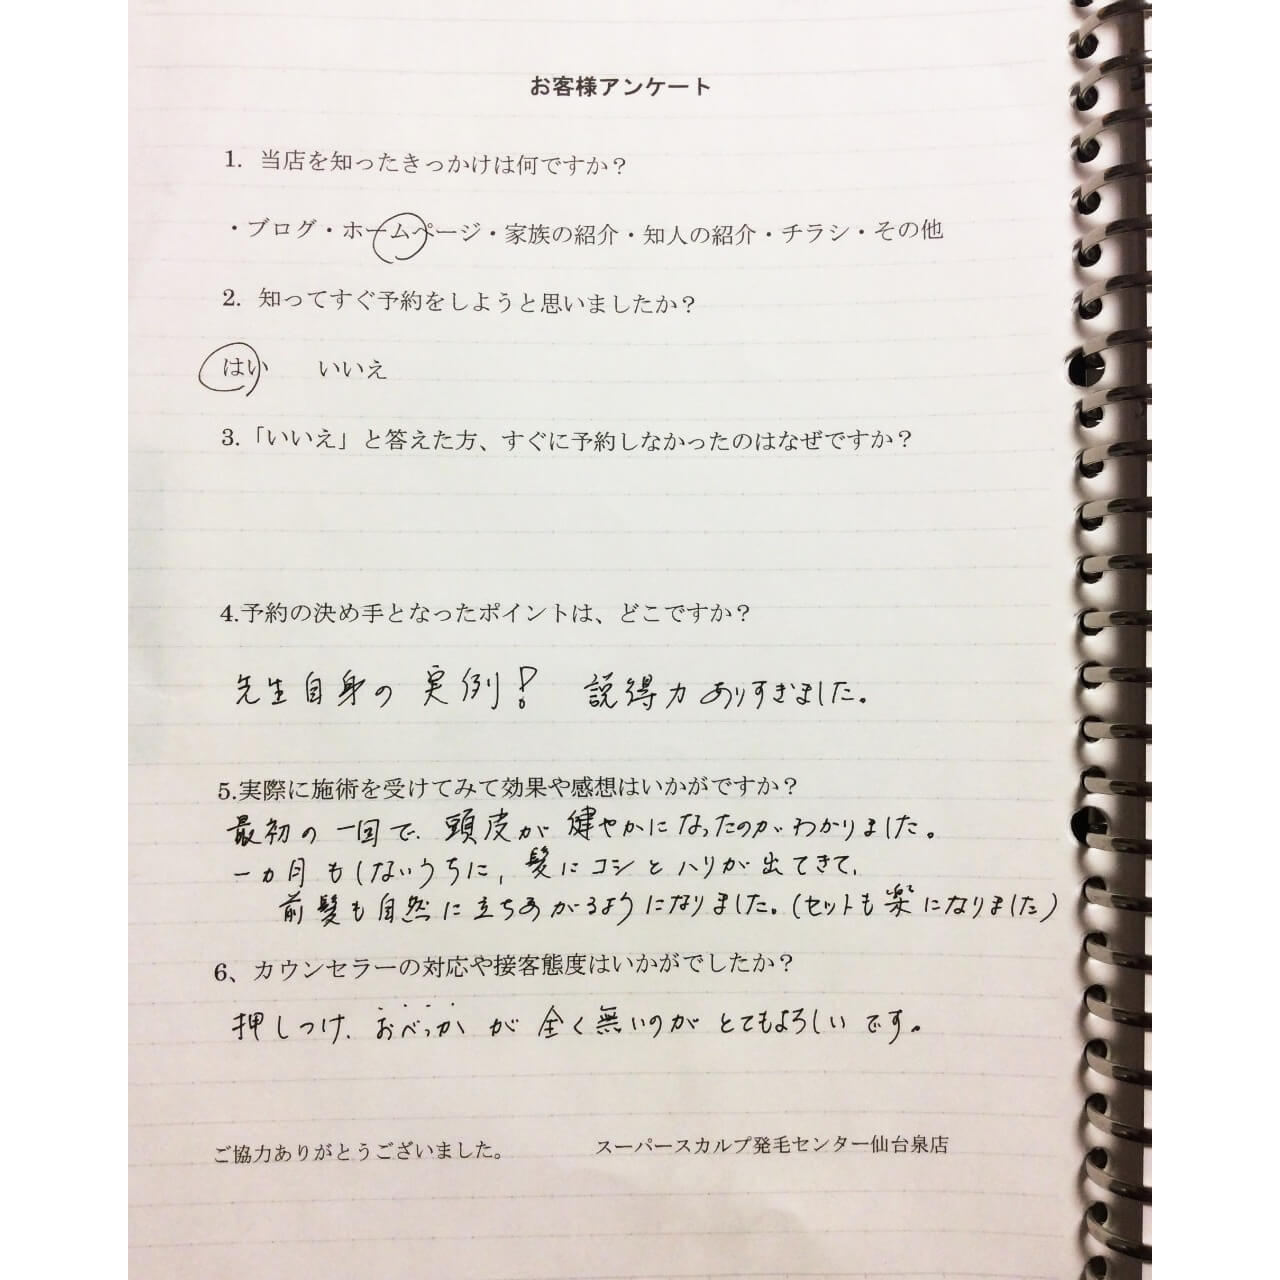 お客様アンケート
1. 当店を知ったきっかけは何ですか？
・ブログ・ホームページ・家族の紹介・知人の紹介・チラシ・その他
2. 知ってすぐ予約をしようと思いましたか？
はい いいえ
3.「いいえ」と答えた方、すぐに予約しなかったのはなぜですか？
4.予約の決め手となったポイントは、どこですか？
先生自身の実例! 説得力ありすぎました。
5.実際に施術を受けてみて効果や感想はいかがですか？
最初の一回で、頭皮が健やかになったのがわかりました。
一カ月もしないうちに、髪にコシとハリが出てきて、
前髪も自然に立ちあがるようになりました。(セットも楽になりました)
6、カウンセラーの対応や接客態度はいかがでしたか？
押しつけ、おべっかが全く無いのがとてもよろしいです。
ご協力ありがとうございました。 スーパースカルプ発毛センター仙台泉店